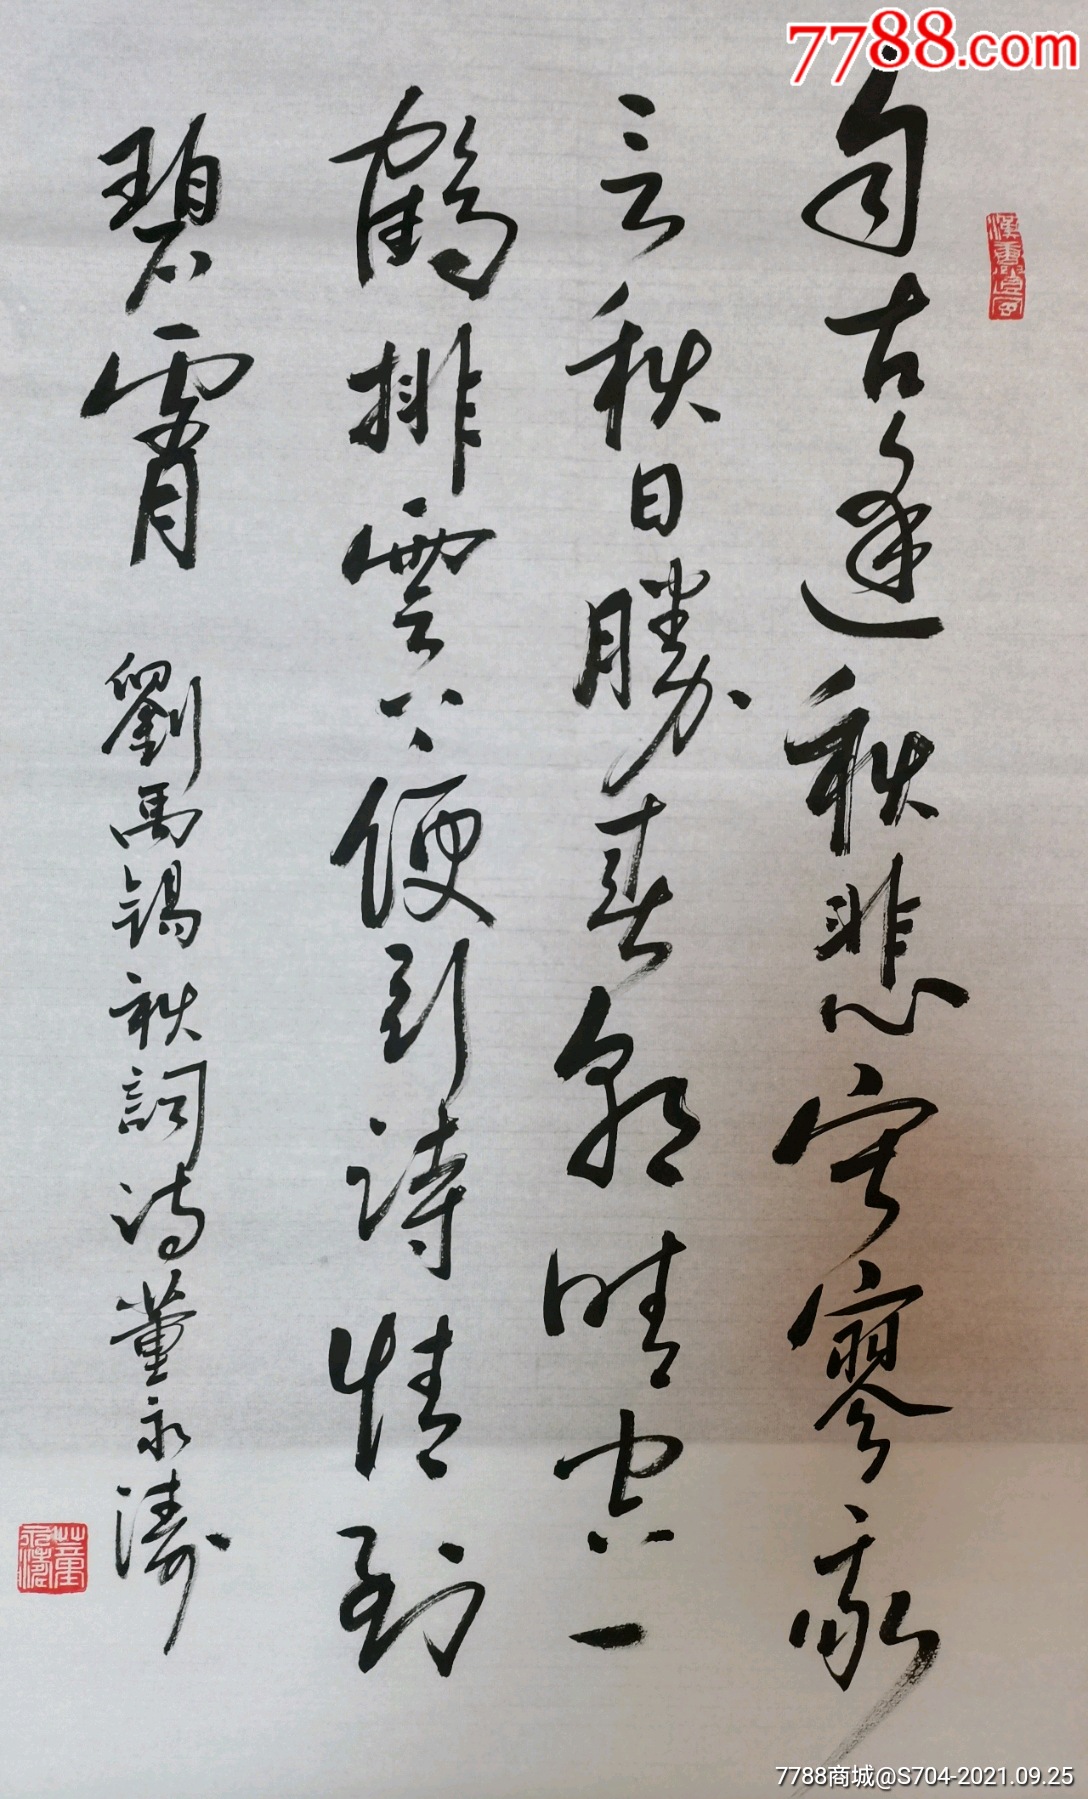 7788.com
自古逢秋悲寂寥我
言秋日勝春朝晴空一
鶴排雲上便引詩情到
碧霄
劉禹錫秋詞詩董永濤
董永濤
7788商城@S704-2021.09.25